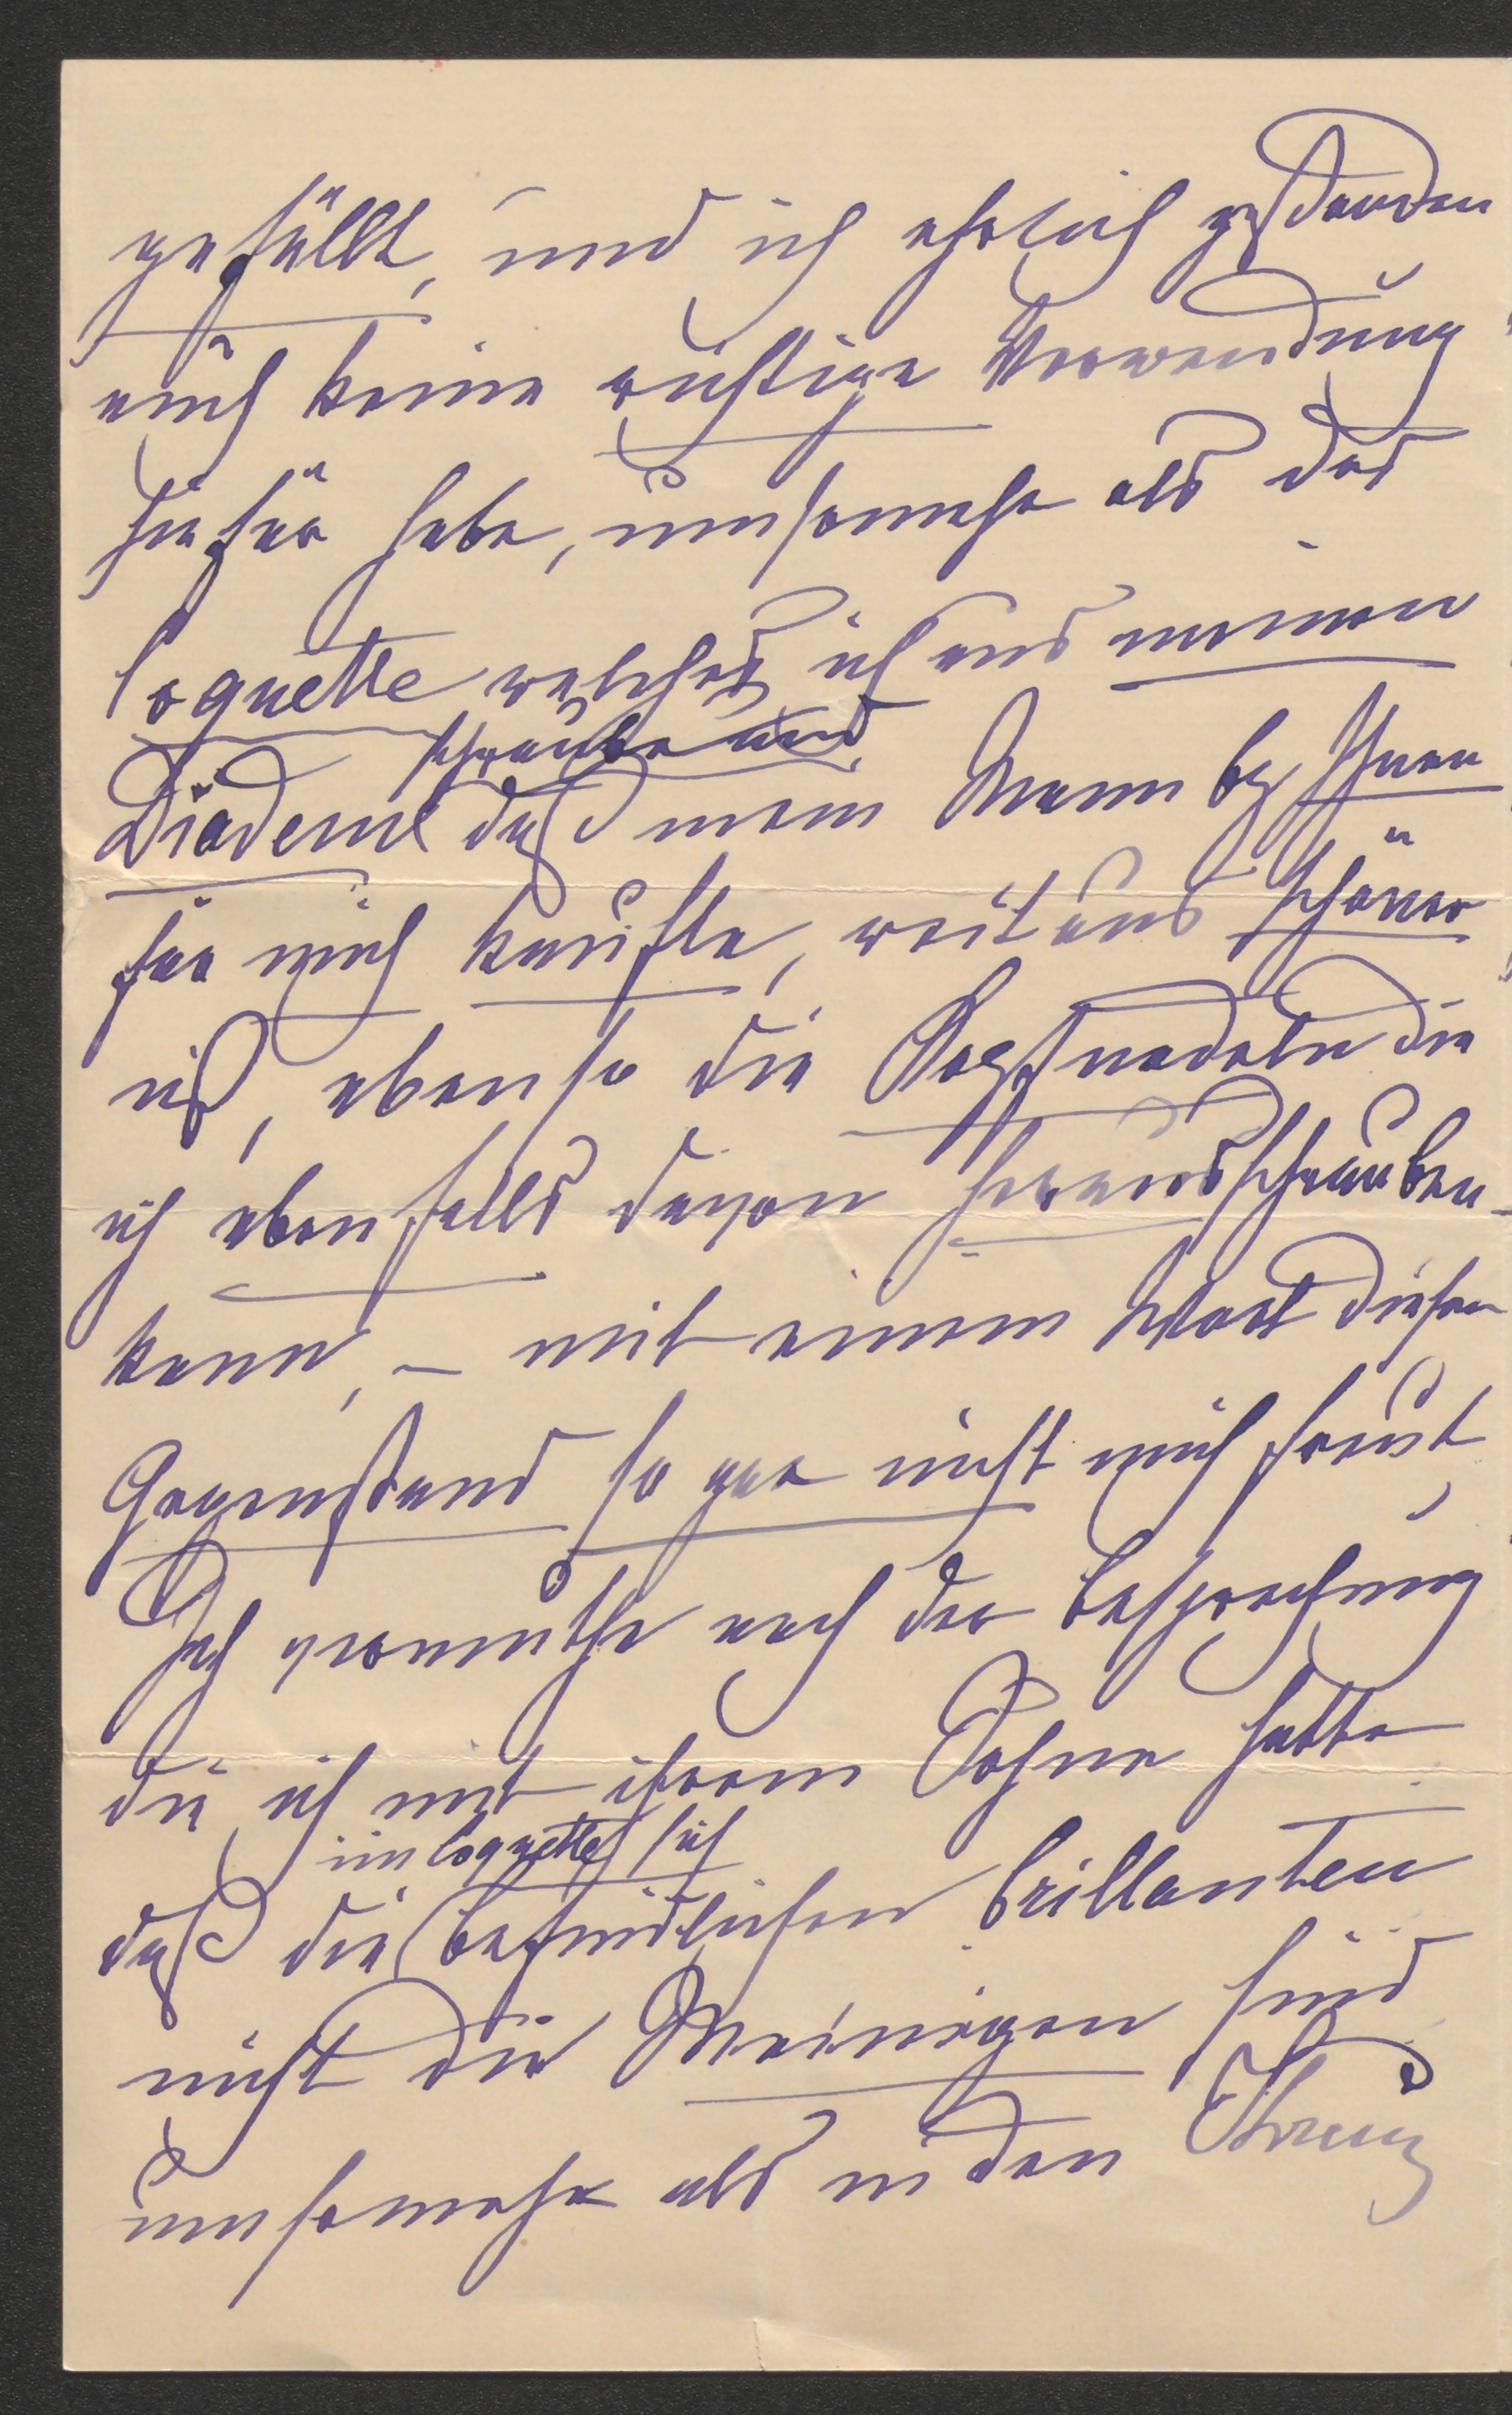 gefällt, und ich ehrlich gestanden
auch keine richtige Verwendung
hiefür habe, umsomehr als das
Coquette welches ich aus meinem
schraube und
Diademe daß mein Mann bei Ihnen
für mich kaufte, weitaus schöner
ist, ebenso die Kopfnadeln die
ich ebenfalls davon herausschrauben
kann, – mit einem Wort dieser
Gegenstand so gar nicht mich freut,
Ich vermuthe nach der Besprechung
die ich mit ihrem Sohne hatte
im Coquette sich
daß die befindlichen Brillanten
nicht die Meinigen sind
umsomehr als in den